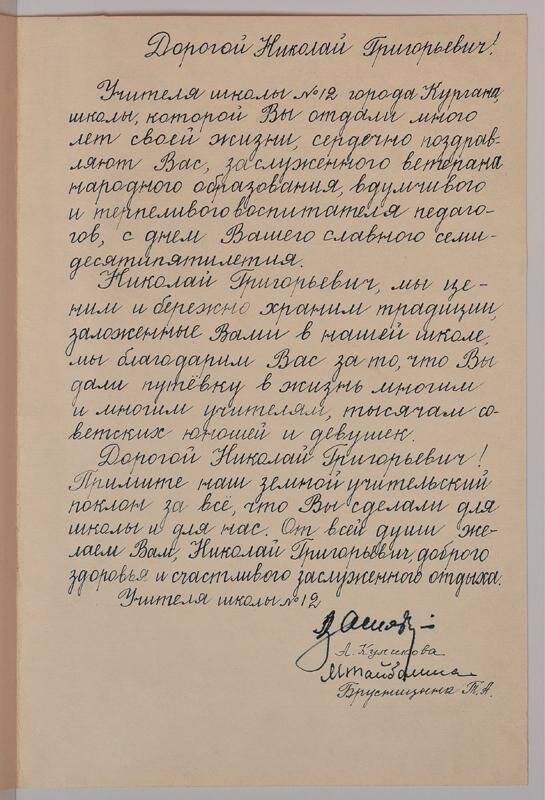 Дорогой Николай Григорьевич!
Учителя школы №12 города Кургана,
школы, которой Вы отдали много
лет своей жизни, сердечно поздрав-
ляют Вас, заслуженного ветерана
народного образования, вдумчивого
и терпеливого воспитателя педаго-
гов, с днем Вашего славного семи-
десятипятилетия.
Николай Григорьевич, мы це-
ним и бережно храним традиции,
заложенные Вами в нашей школе,
мы благодарим Вас за то, что Вы
дали путёвку в жизнь многим
и многим учителям, тысячам со-
ветских юношей и девушек.
Дорогой Николай Григорьевич!
Примите наш земной учительский
поклон за всё, что Вы сделали для
школы и для нас. От всей души же-
лаем Вам, Николай Григорьевич, доброго
здоровья и счастливого заслуженного отдыха.
Учителя школы №12
А. Куликова
Брусницына Т.А.